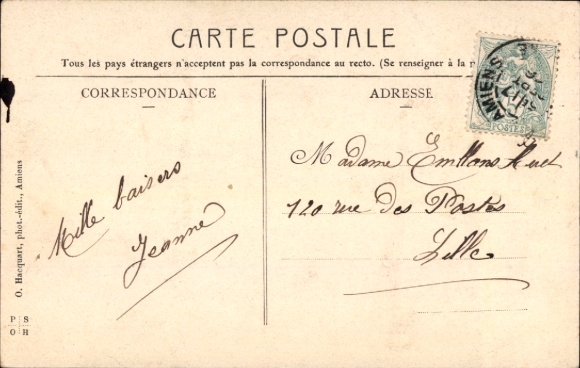 CARTE POSTALE
Tous les pays étrangers n'acceptent pas la correspondance au recto. (Se renseigner à la
CORRESPONDANCE
ADRESSE
AMIENS
POSTES
Mille baisers
Jeanne
Madame
120 rue des Postes
Lille
O. Hacquart, phot.-édit., Amiens
P S
O H